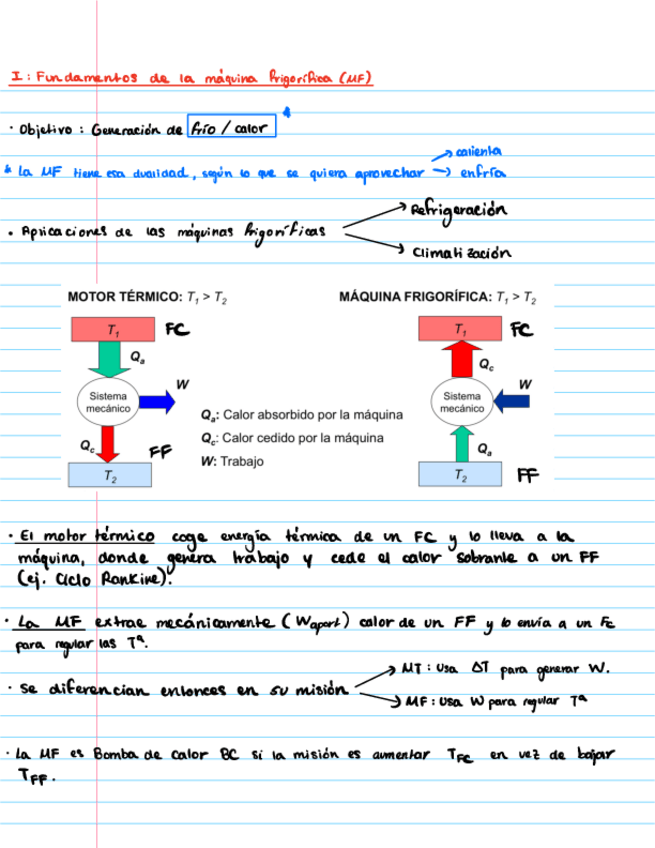 I: Fundamentos de la máquina frigorífica (MF)
· Objetivo: Generación de frío / calor *
* La MF tiene esa dualidad, según lo que se quiera aprovechar → calienta
→ enfría
· Aplicaciones de las máquinas frigoríficas → Refrigeración
→ Climatización
MOTOR TÉRMICO: T1 > T2
MÁQUINA FRIGORÍFICA: T1 > T2
T1 FC
Qa
Sistema mecánico
W
Qc
FF
T2
Qa: Calor absorbido por la máquina
Qc: Calor cedido por la máquina
W: Trabajo
T1 FC
Qc
Sistema mecánico
W
Qa
T2 FF
· El motor térmico coge energía térmica de un FC y lo lleva a la
máquina, donde genera trabajo y cede el calor sobrante a un FF
(ej. Ciclo Rankine).
· La MF extrae mecánicamente (Waport) calor de un FF y lo envía a un FC
para regular las Tª.
· Se diferencian entonces en su misión → MT: Usa ΔT para generar W.
→ MF: Usa W para regular Tª
· La MF es Bomba de calor BC si la misión es aumentar TFC en vez de bajar
TFF.